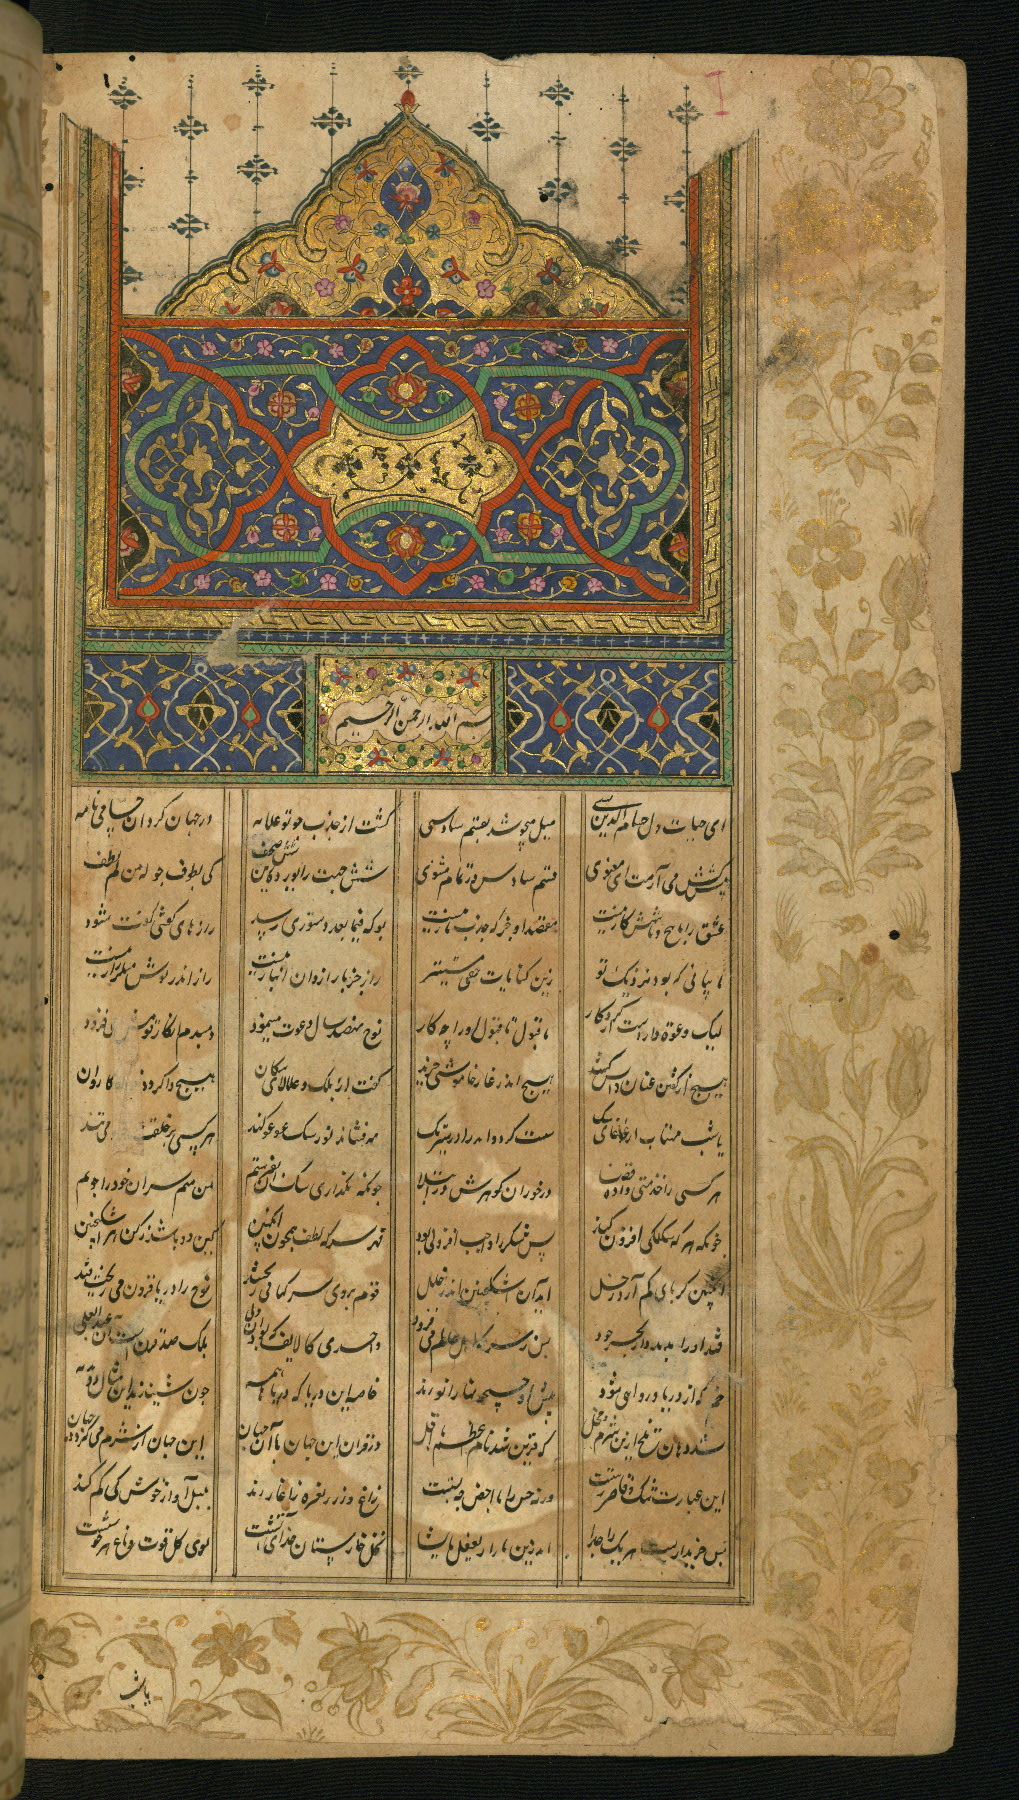 بسم الله الرحمن الرحیم
ای حیات دل حسام الدین بسی میل میجوشد بقسم سادسی گشت از جذب چو تو علامه در جهان گردان حسامی نامه
پیشکش می آرمت ای معنوی قسم سادس در تمام مثنوی شش جهت را نور ده زین شش صحف کی یطوف حوله من لم یطف
عشق را با پنج و با شش کار نیست مقصد او جز که جذب یار نیست بو که فیما بعد دستوری رسد رازهای گفتنی گفته شود
با بیانی که بود نزدیک تو زین کنایات دقیق مستتر راز جز با رازدان انباز نیست راز اندر گوش منکر راز نیست
لیک دعوة وارد است از کردگار با قبول نا قبول او را چه کار نوح نهصد سال دعوت مینمود دمبدم انکار قومش می فزود
هیچ از گفتن عنان واپس کشید هیچ اندر غار خاموشی خزید گفت از بانک و علالای سکان هیچ واگردد کاروان
یا شب مهتاب از غوغای سک سست گردد بدر را در سیر تک مه فشاند نور سک عوعو کند هر کسی بر خلقت می تند
هر کسی را خدمتی داده قضا در خور آن گوهرش در ابتلا چونکه نگذارد سک آن سقم من مهم سیران خود را چو هلم
چونکه سرکه سرکگی افزون کند پس شکر را واجب افزونی بود قهر سرکه لطف همچون انگبین کین دو باشد رکن هر اشکنجبین
انگبین گر پای کم آرد ز خل آید آن اشکنجبین اندر خلل قوم بروی سرکها می ریختند نوح را دریا فزون می ریخت قند
قند او را بد مدد از بحر جود پس ز سرکه اهل عالم می فزود واحدی کالالف که بود آن ولی بلک صد قرن است آن عبد العلی
خم که از دریا درو راهی شود پیش او جیحونها زانو زند خاصه این دریا که دریاها همه چون شنیدند این مثال و دمدمه
شد دهان تلخ ازین شرم و خجل که قرین شد نام اعظم با اقل در قران این جهان با آن جهان این جهان از شرم می گردد جهان
این عبارت تنک و قاصر رتبتست ورنه خس را با اخص چه نسبتست زاغ در رز نعره زاغان زند بلبل آواز خوش کی کم کند
پس خریدارست هر یک را جدا اندرین بازار یفعل ما یشا نقل خارستان غذای آتشست بوی گل قوت دماغ سرخوشست